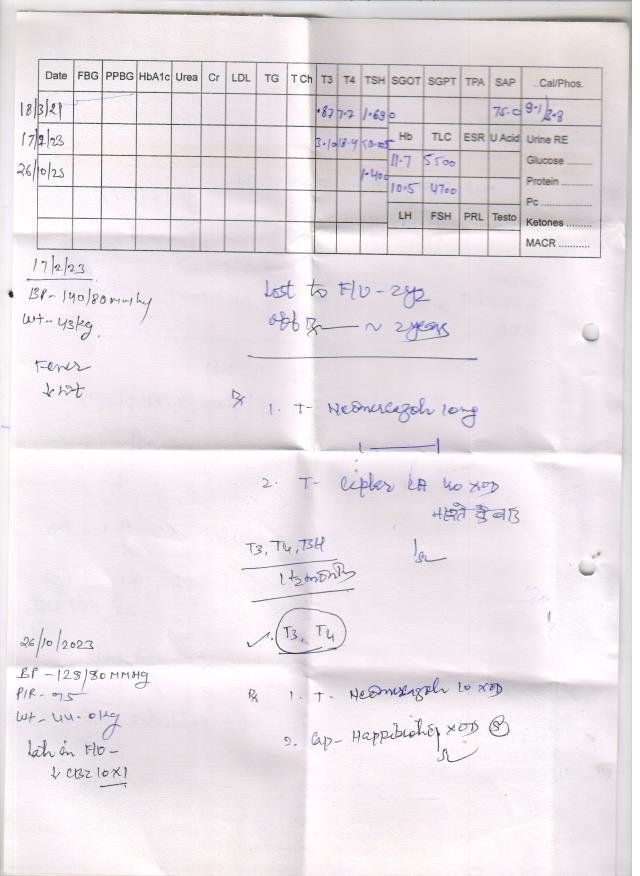 Date FBG PPBG HbA1c Urea Cr LDL TG T Ch T3 T4 TSH SGOT SGPT TPA SAP Cal/Phos.
18/3/21 .87 7.2 1.690 75.0 9.1/3.8
17/2/23 3.10 18.4 <0.005 Hb TLC ESR U Acid Urine RE
11.7 5500 Glucose ..........
26/10/23 1.400 Protein ...........
10.5 4700 Pc ..................
LH FSH PRL Testo Ketones .........
MACR ...........
17/2/23
BP- 140/80mmHg
Wt- 43kg
Fever
↓ Wt
Lost to F/U - 2yrs
off Rx ~ 2 years
Rx 1. T- Neomercazole 10mg
1 1
2. T- Ciplar LA 40 XOD
नाश्ते के बाद
T3, T4, TSH
1½ month
✓ T3, T4
26/10/2023
BP - 128/80 MMHG
P/R- 95
Wt- 44.0kg
Late in F/U -
↓ CBZ 10 X 1
Rx 1. T- Neomercazole 10 XOD
2. Cap- XOD